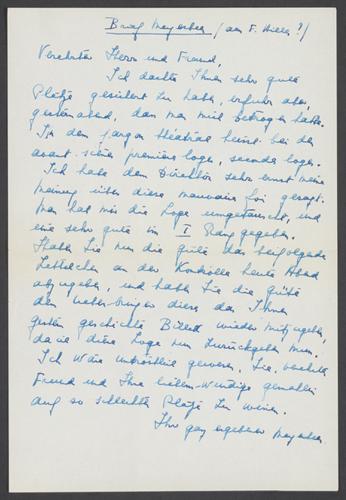 Brief Meyerbeer / an F. Hiller ?/
Verehrter Herr und Freund,
Ich dachte Ihnen sehr gute
Plätze gesichert zu haben, erfuhr aber,
gestern abend, das man mich betrogen hatte.
In dem jargon théatral heisst bei der
avant-scène première loge, seconde loge.
Ich habe dem Direktor sehr ernst meine
Meinung über diese mauvaise foi gesagt.
Man hat mir die Loge umgetauscht, und
eine sehr gute im I Rang gegeben.
Haben Sie nun die Güte das beifolgende
Zettelchen an der Kontrolle heute Abend
abzugeben, und haben Sie die Güte
dem Ueberbringer dieses das Ihnen
gestern geschickte Billet wieder mitzugeben,
da ich diese Loge nun zurückgeben muss.
Ich wäre untröstlich gewesen, Sie, verehrter
Freund und Ihre liebenswürdige Gemahlin
auf so schlechte Plätze zu wissen.
Ihr ganz ergebener Meyerbeer.